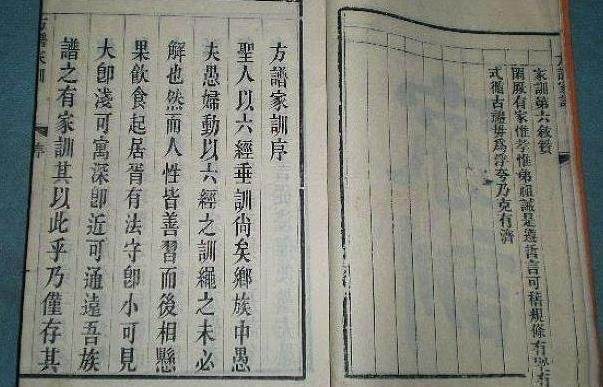 方譜家訓
家訓第六敘贊
閑厥有家惟孝惟弟祖誡是遵哲言可稽規條有
式循古瑞毋為浮夸乃克有濟
方譜家訓序
聖人以六經垂訓尚矣鄉族中愚
夫愚婦動以六經之訓繩之未必
解也然而人性皆善習而後相懸
果飲食起居胥有法守卽小可見
大卽淺可寓深卽近可通遠吾族
譜之有家訓其以此乎乃僅存其
方譜家訓
序